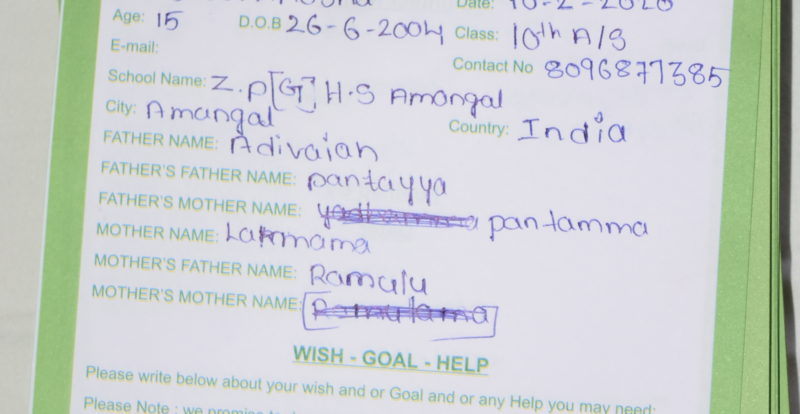 Date: 10-2-2020
Age: 15 D.O.B 26-6-2004 Class: 10th A/S
E-mail: Contact No 8096877385
School Name: Z.P[G] H.S Amangal
City: Amangal Country: India
FATHER NAME: Adivaiah
FATHER'S FATHER NAME: pantayya
FATHER'S MOTHER NAME: pantamma
MOTHER NAME: Lakmama
MOTHER'S FATHER NAME: Ramulu
MOTHER'S MOTHER NAME: Ramulama
WISH - GOAL - HELP
Please write below about your wish and or Goal and or any Help you may need:
Please Note : we